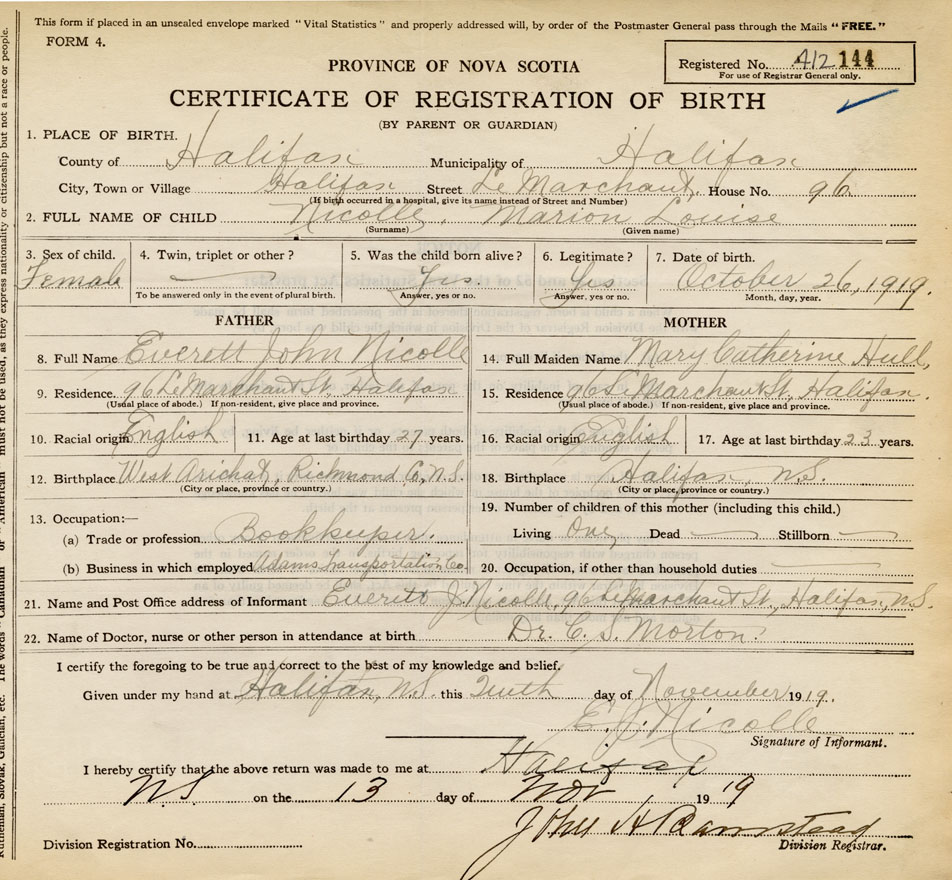 This form if placed in an unsealed envelope marked "Vital Statistics" and properly addressed will, by order of the Postmaster General pass through the Mails "FREE."
FORM 4.
Registered No. 412 144
For use of Registrar General only.
PROVINCE OF NOVA SCOTIA
CERTIFICATE OF REGISTRATION OF BIRTH
(BY PARENT OR GUARDIAN)
1. PLACE OF BIRTH.
County of Halifax Municipality of Halifax
City, Town or Village Halifax Street Le Marchant, House No. 96
(If birth occurred in a hospital, give its name instead of Street and Number)
2. FULL NAME OF CHILD Nicolle, Marion Louise
(Surname) (Given name)
3. Sex of child. 4. Twin, triplet or other? 5. Was the child born alive? 6. Legitimate? 7. Date of birth.
Female Yes. Yes October 26, 1919.
To be answered only in the event of plural birth. Answer, yes or no. Answer, yes or no. Month, day, year.
FATHER
8. Full Name Everett John Nicolle
9. Residence 96 Le Marchant St, Halifax
(Usual place of abode.) If non-resident, give place and province.
10. Racial origin English 11. Age at last birthday 27 years.
12. Birthplace West Arichat, Richmond Co, N.S.
(City or place, province or country.)
13. Occupation:—
(a) Trade or profession Bookkeeper.
(b) Business in which employed Adams Transportation Co.
MOTHER
14. Full Maiden Name Mary Catherine Hull,
15. Residence 96 Le Marchant St, Halifax.
(Usual place of abode.) If non-resident, give place and province.
16. Racial origin English 17. Age at last birthday 23 years.
18. Birthplace Halifax, N.S.
(City or place, province or country.)
19. Number of children of this mother (including this child.)
Living One, Dead Stillborn
20. Occupation, if other than household duties
21. Name and Post Office address of Informant Everett J Nicolle, 96 Le Marchant St, Halifax, N.S.
22. Name of Doctor, nurse or other person in attendance at birth Dr. C. S. Morton.
I certify the foregoing to be true and correct to the best of my knowledge and belief.
Given under my hand at Halifax, N.S. this Tenth day of November 1919.
E. J. Nicolle
Signature of Informant.
I hereby certify that the above return was made to me at Halifax
N.S. on the 13 day of Nov 1919
John H
Division Registration No. Division Registrar.
Ruthenian, Slovak, Galician, etc. The words "Canadian" or "American" must not be used, as they express nationality or citizenship but not a race or people.